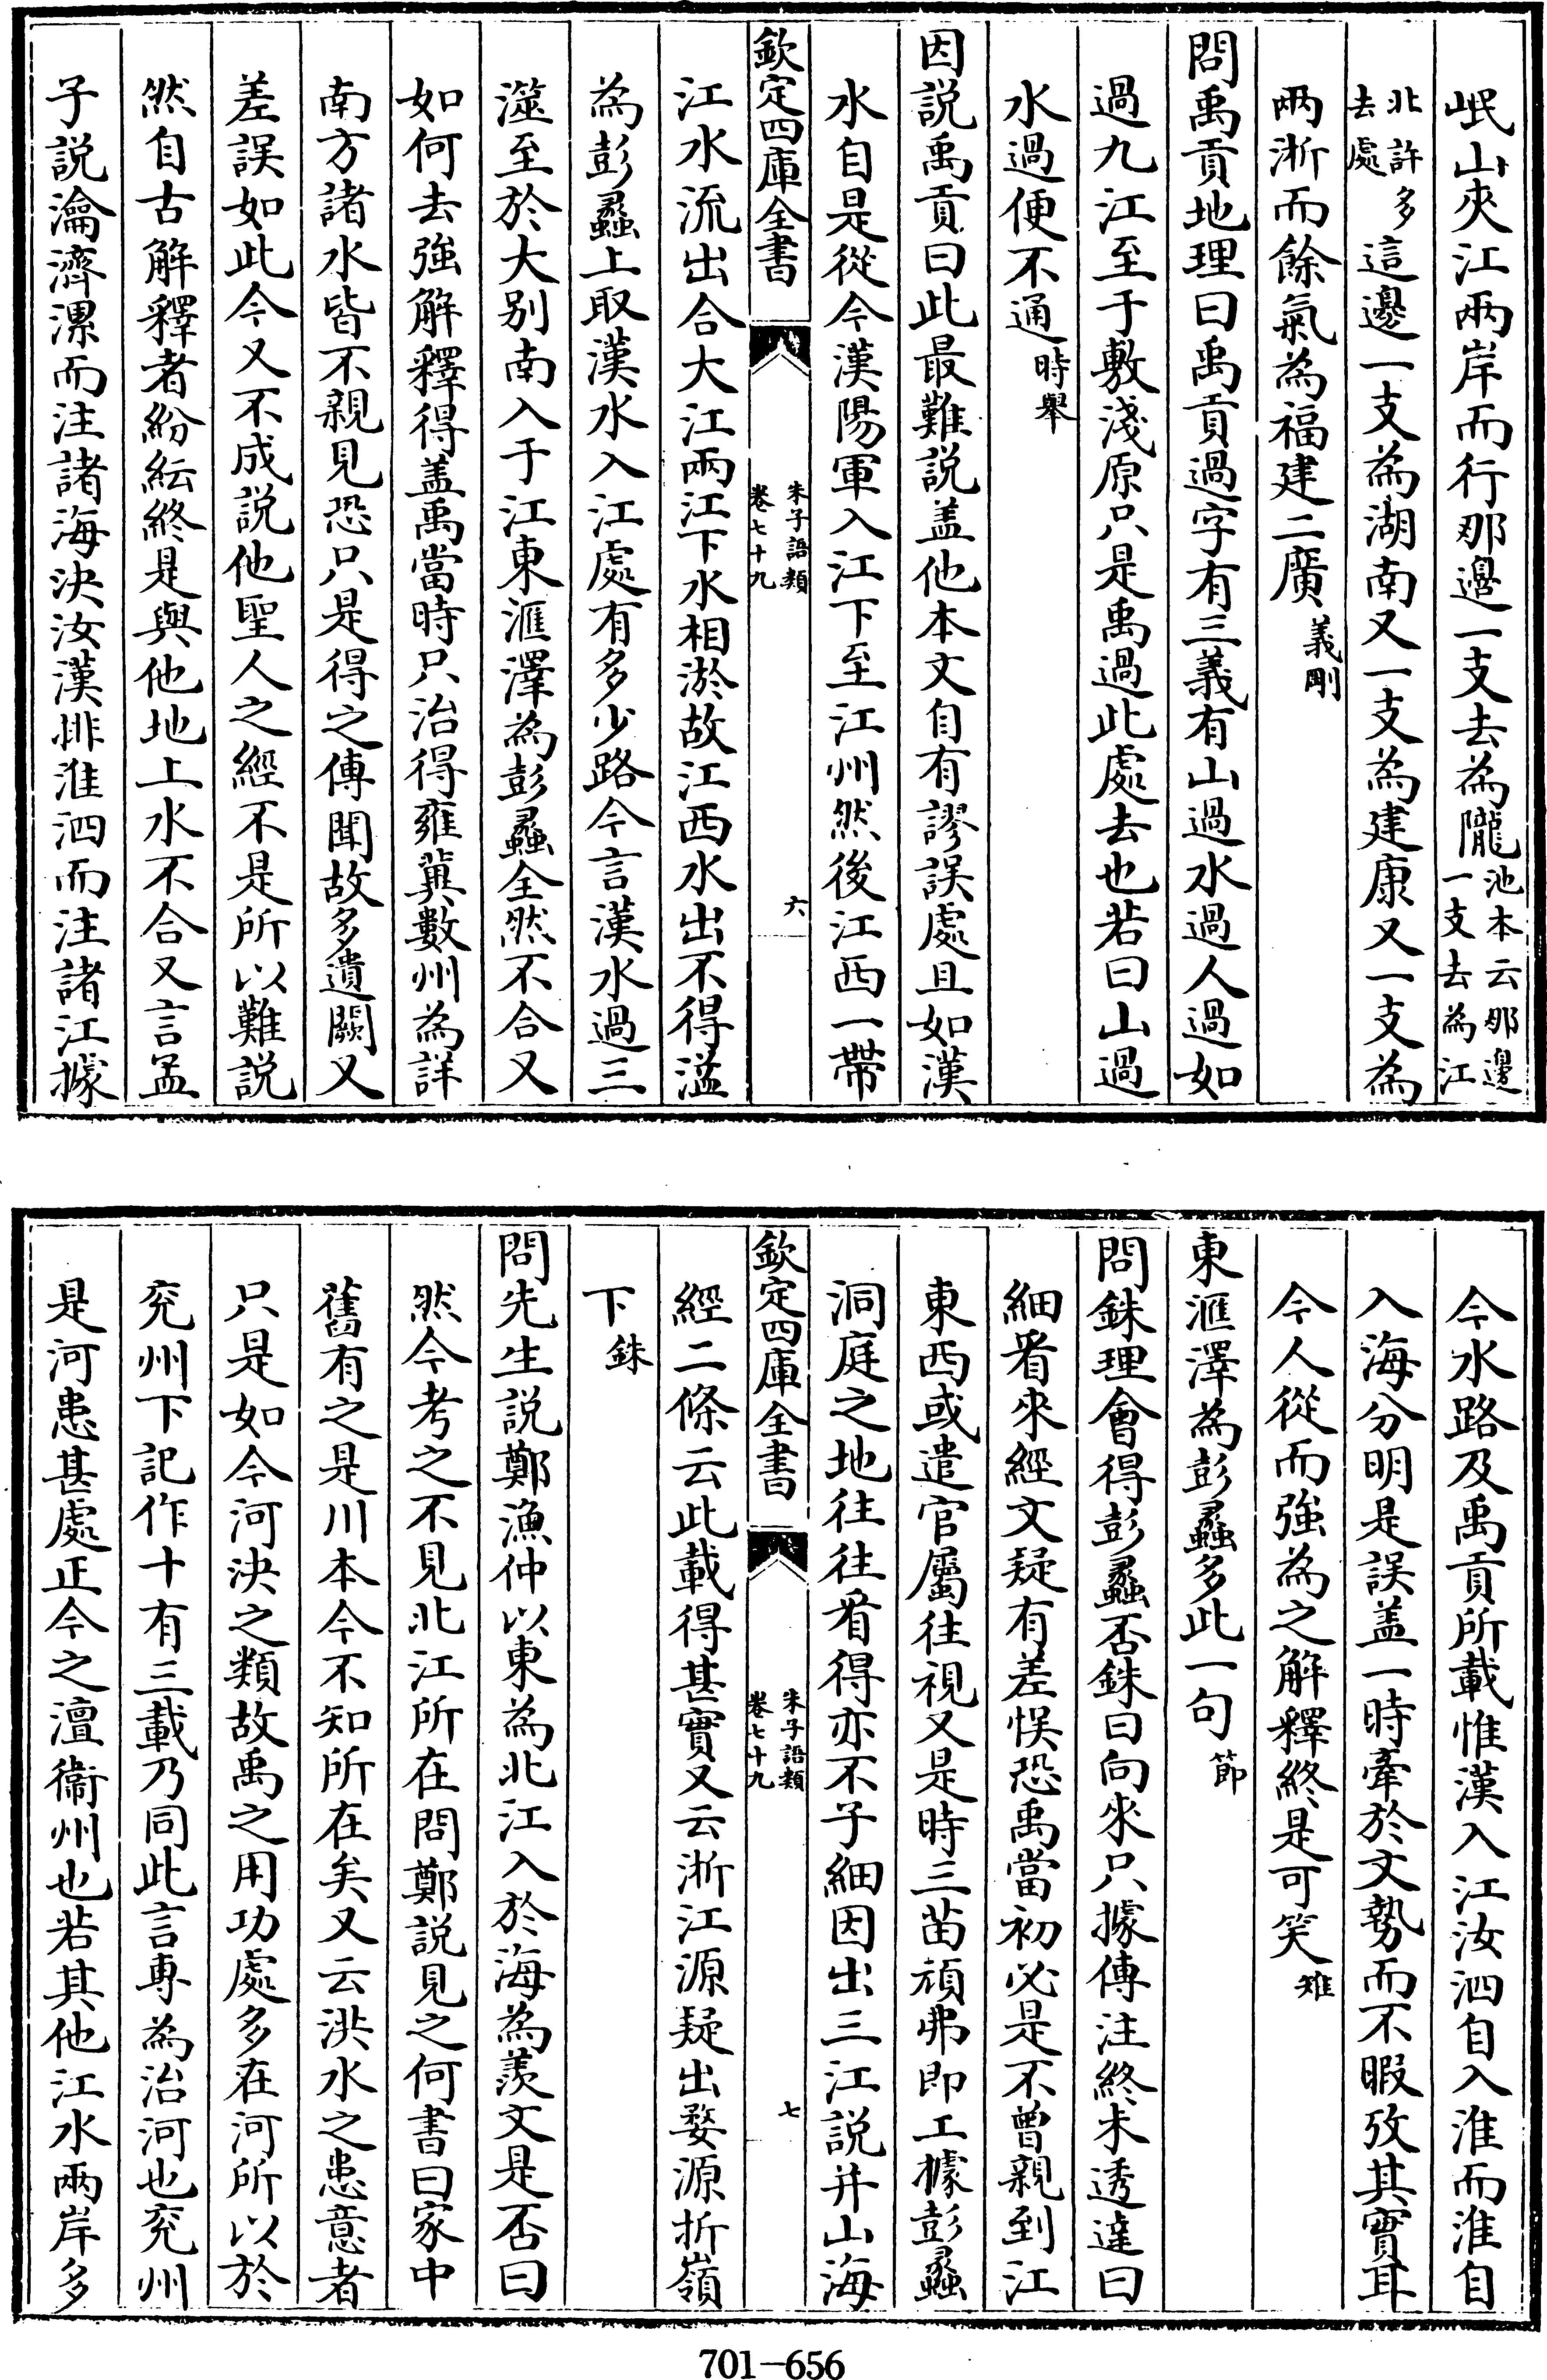 岷山夾江兩岸而行那邊一支去為隴池本云那邊一支去為江
北許多去處這邊一支為湖南又一支為建康又一支為
兩浙而餘氣為福建二廣義剛
問禹貢地理曰禹貢過字有三義有山過水過人過如
過九江至于敷淺原只是禹過此處去也若曰山過
水過便不通時舉
因説禹貢曰此最難説盖他本文自有謬誤處且如漢
水自是從今漢陽軍入江下至江州然後江西一帶
欽定四庫全書 朱子語類 卷七十九 六
江水流出合大江兩江下水相淤故江西水出不得溢
為彭蠡上取漢水入江處有多少路今言漢水過三
澨至於大别南入于江東滙澤為彭蠡全然不合又
如何去強解釋得盖禹當時只治得雍冀數州為詳
南方諸水皆不親見恐只是得之傳聞故多遺闕又
差誤如此今又不成説他聖人之經不是所以難説
然自古解釋者紛紜終是與他地上水不合又言孟
子説瀹濟漯而注諸海決汝漢排淮泗而注諸江據
今水路及禹貢所載惟漢入江汝泗自入淮而淮自
入海分明是誤盖一時牽於文勢而不暇攷其實耳
今人從而強為之解釋終是可笑雉
東滙澤為彭蠡多此一句節
問銖理會得彭蠡否銖曰向來只據傳注終未透達曰
細看來經文疑有差悮恐禹當初必是不曾親到江
東西或遣官屬往視又是時三苗頑弗即工據彭蠡
洞庭之地往往看得亦不子細因出三江説并山海
欽定四庫全書 朱子語類 卷七十九 七
經二條云此載得甚實又云浙江源疑出婺源折嶺
下銖
問先生説鄭漁仲以東為北江入於海為羨文是否曰
然今考之不見北江所在問鄭説見之何書曰家中
舊有之是川本今不知所在矣又云洪水之患意者
只是如今河決之類故禹之用功處多在河所以於
兖州下記作十有三載乃同此言專為治河也兖州
是河患甚處正今之澶衞州也若其他江水兩岸多
701-656